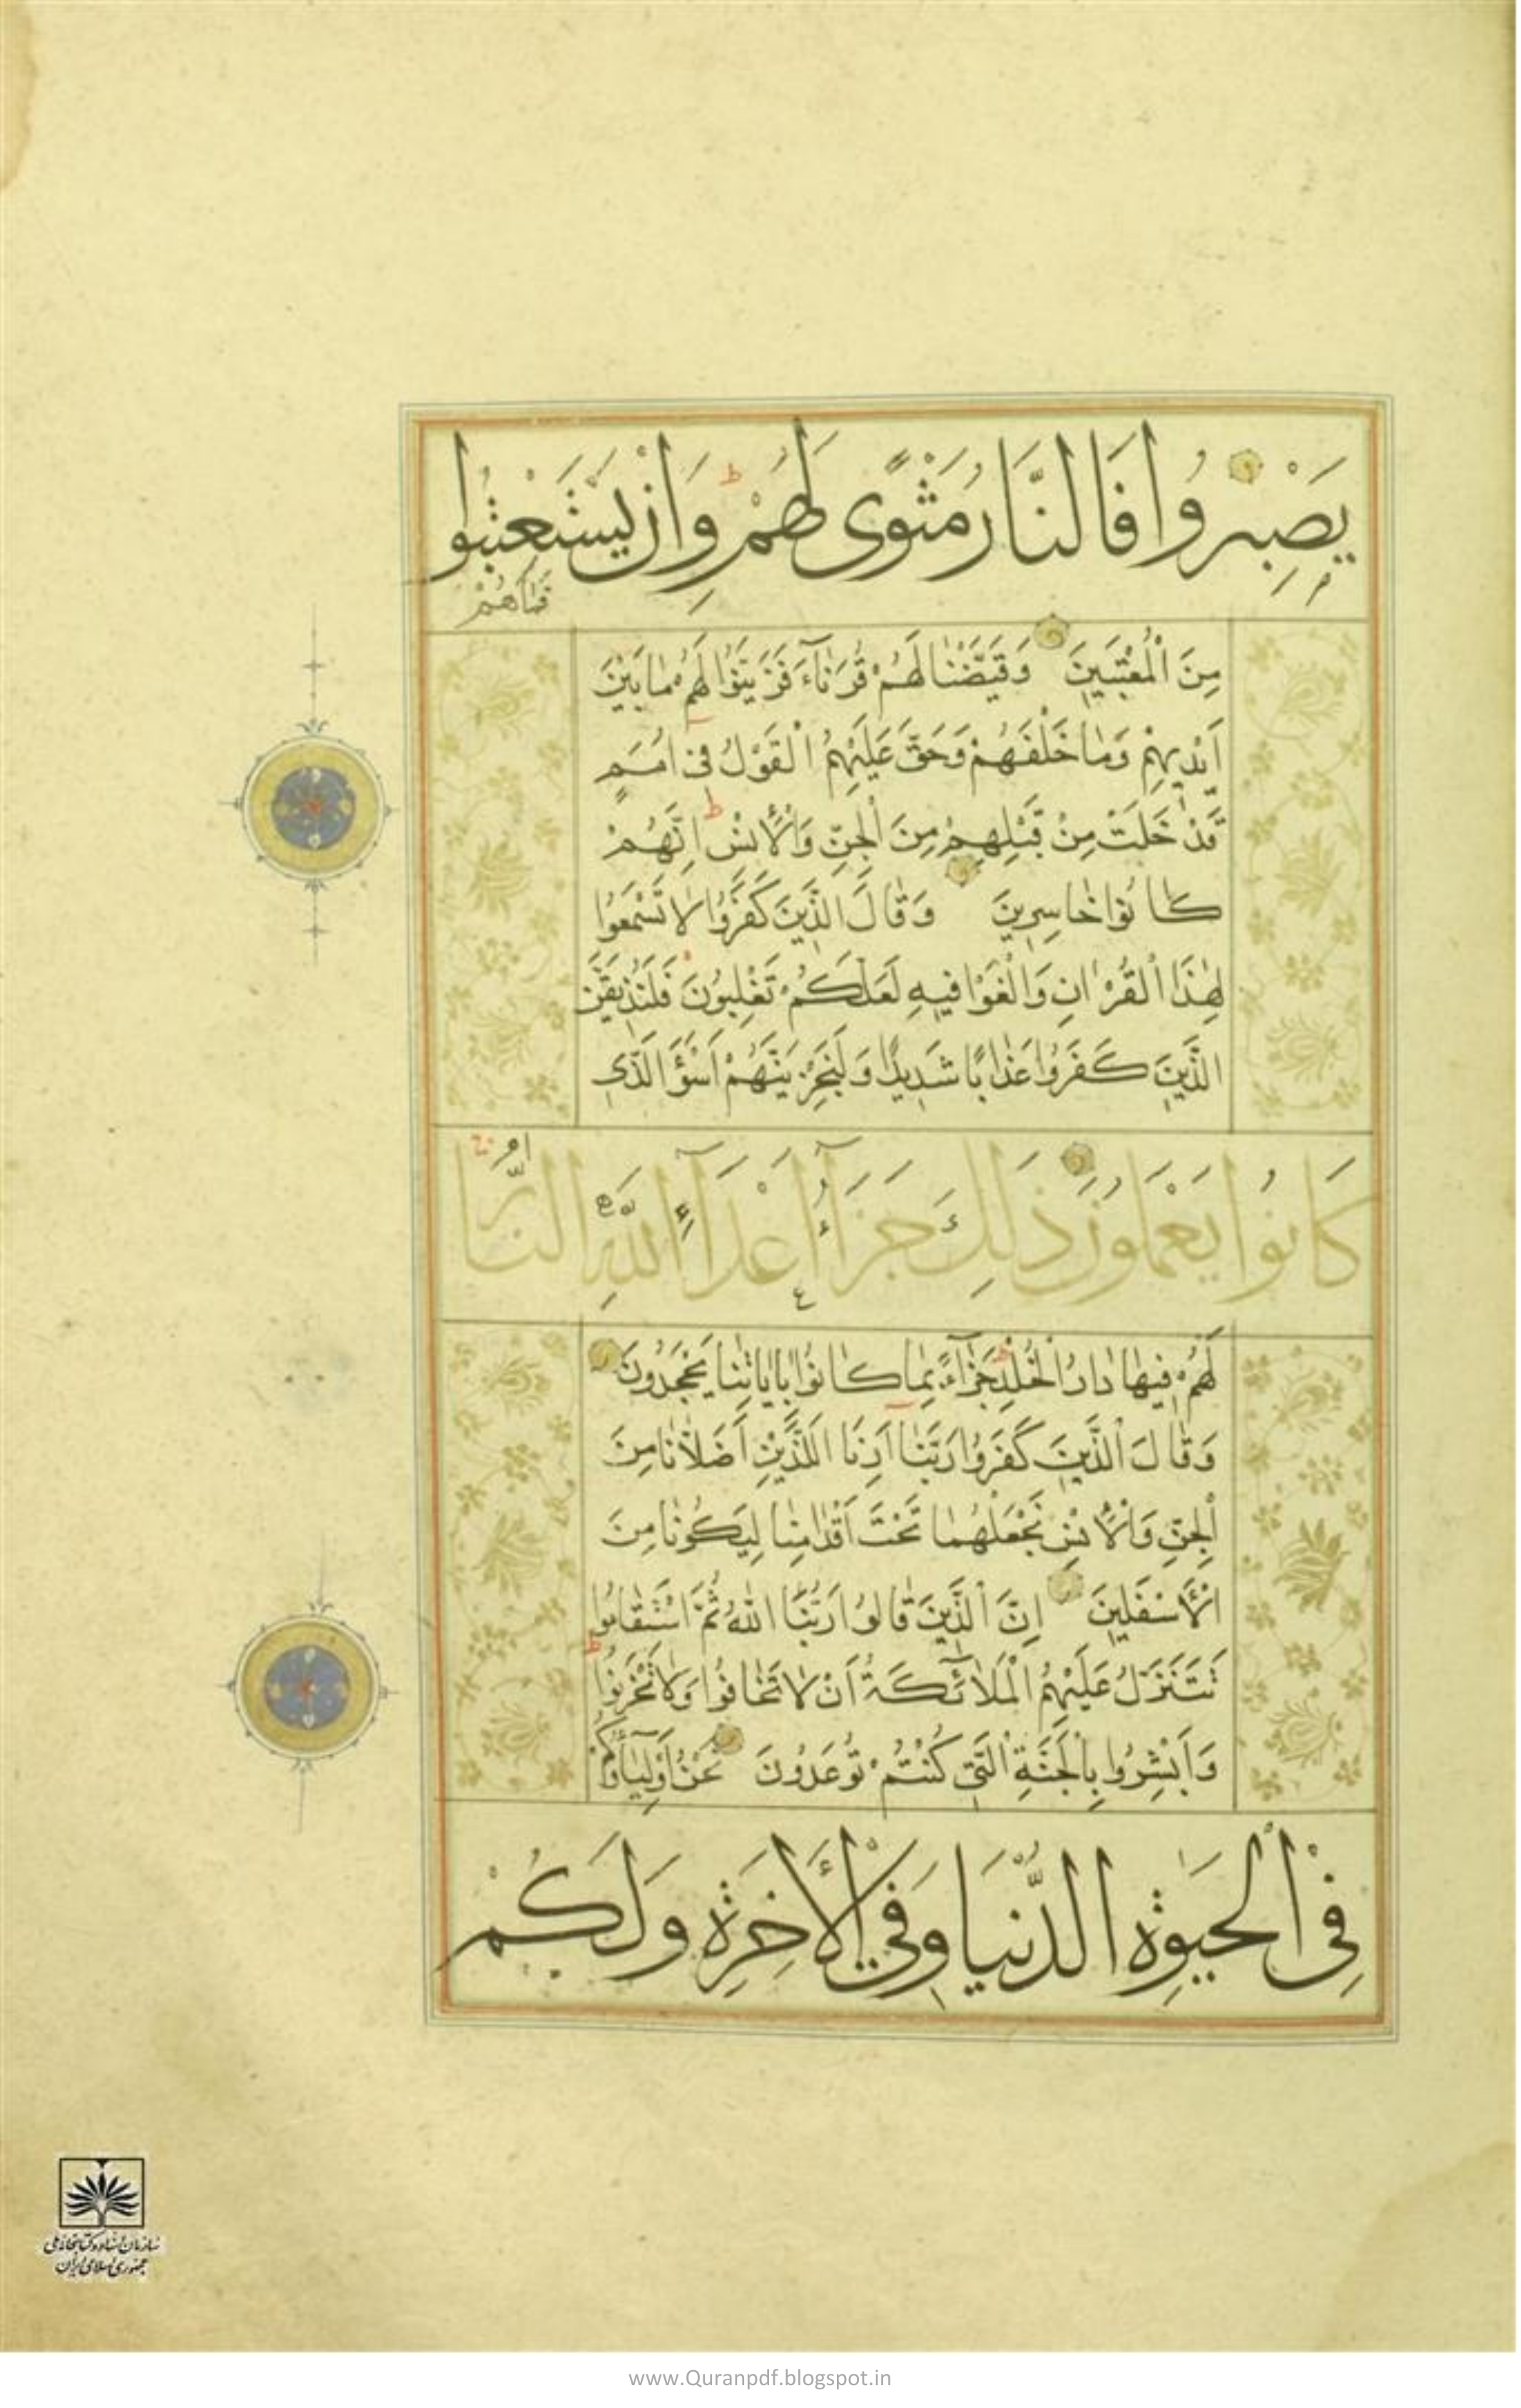 يَصْبِرُوا فَالنَّارُ مَثْوًى لَهُمْ ط وَاِنْ يَسْتَعْتِبُوا
فَمَا هُمْ
مِنَ الْمُعْتَبِينَ وَقَيَّضْنَا لَهُمْ قُرَنَاءَ فَزَيَّنُوا لَهُمْ مَا بَيْنَ
اَيْدِيهِمْ وَمَا خَلْفَهُمْ وَحَقَّ عَلَيْهِمُ الْقَوْلُ فِي اُمَمٍ
قَدْ خَلَتْ مِنْ قَبْلِهِمْ مِنَ الْجِنِّ وَالْاِنْسِ ط اِنَّهُمْ
كَانُوا خَاسِرِينَ وَقَالَ الَّذِينَ كَفَرُوا لَا تَسْمَعُوا
لِهٰذَا الْقُرْاٰنِ وَالْغَوْا فِيهِ لَعَلَّكُمْ تَغْلِبُونَ فَلَنُذِيقَنَّ
الَّذِينَ كَفَرُوا عَذَابًا شَدِيدًا وَلَنَجْزِيَنَّهُمْ اَسْوَؤَ الَّذِي
كَانُوا يَعْمَلُونَ ذٰلِكَ جَزَآءُ اَعْدَآءِ اللّٰهِ النَّارُ
لَهُمْ فِيهَا دَارُ الْخُلْدِ ط جَزَآءً بِمَا كَانُوا بِاٰيَاتِنَا يَجْحَدُونَ
وَقَالَ الَّذِينَ كَفَرُوا رَبَّنَا اَرِنَا الَّلذَيْنِ اَضَلَّانَا مِنَ
الْجِنِّ وَالْاِنْسِ نَجْعَلْهُمَا تَحْتَ اَقْدَامِنَا لِيَكُونَا مِنَ
الْاَسْفَلِينَ اِنَّ الَّذِينَ قَالُوا رَبُّنَا اللّٰهُ ثُمَّ اسْتَقَامُوا
تَتَنَزَّلُ عَلَيْهِمُ الْمَلَائِكَةُ اَنْ لَا تَخَافُوا وَلَا تَحْزَنُوا
وَاَبْشِرُوا بِالْجَنَّةِ الَّتِي كُنْتُمْ تُوعَدُونَ نَحْنُ اَوْلِيَاؤُكُمْ
فِي الْحَيٰوةِ الدُّنْيَا وَفِي الْاٰخِرَةِ وَلَكُمْ
سازمان اسناد و کتابخانه ملی
جمهوری اسلامی ایران
www.Quranpdf.blogspot.in